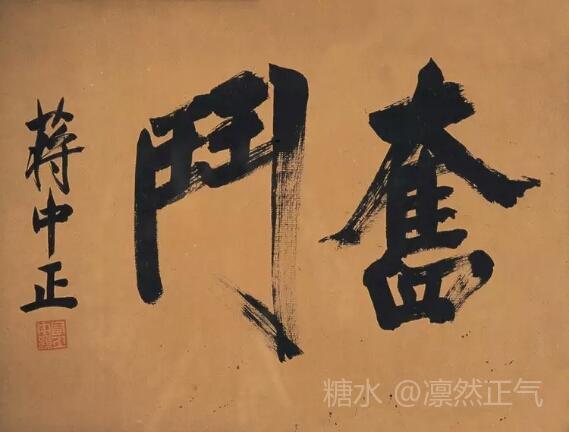 奮鬥
蔣中正
糖水 @凛然正气